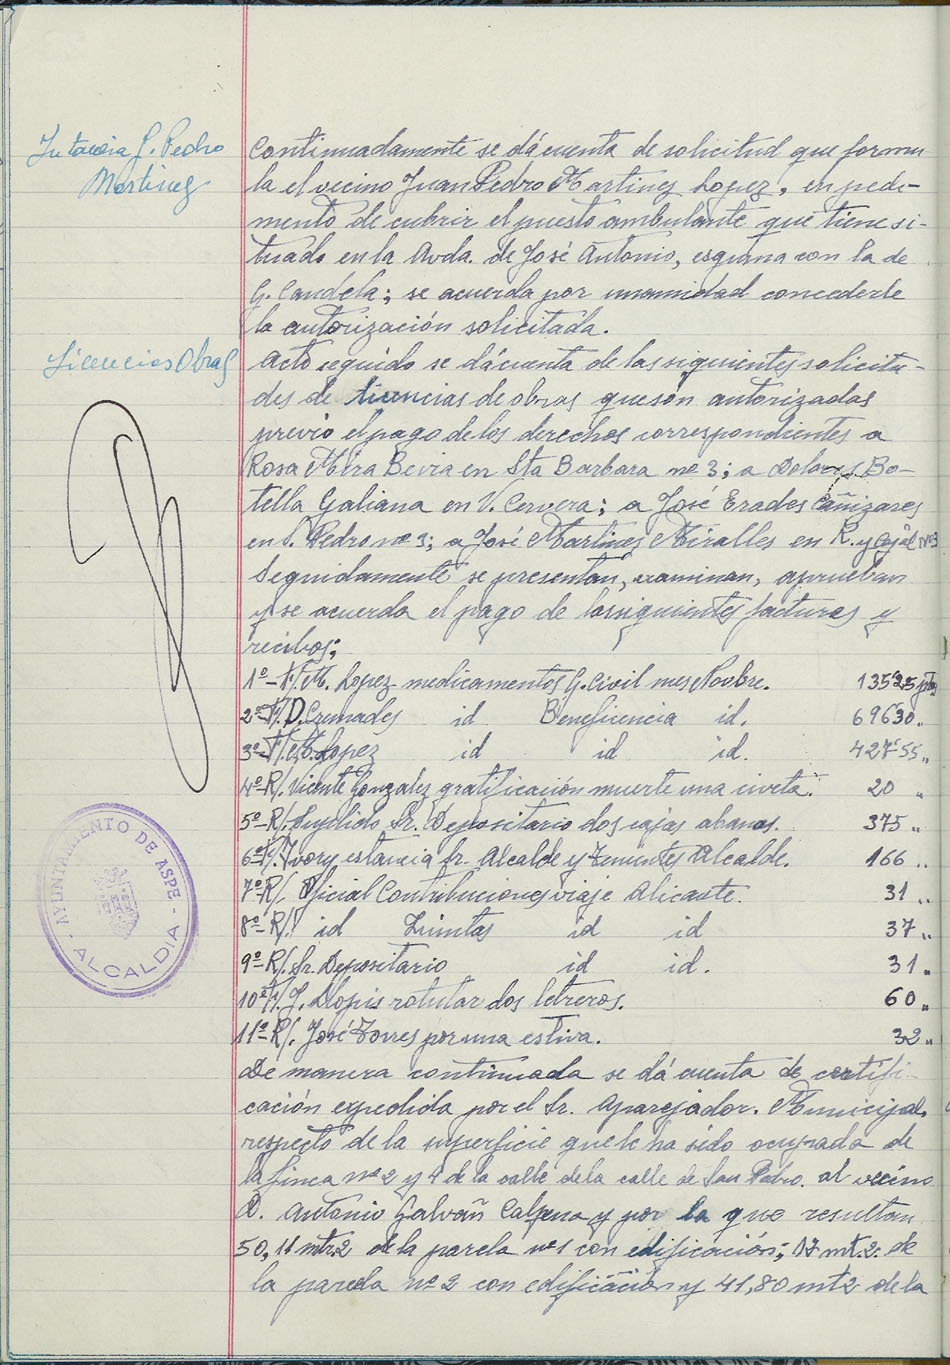 Instancia J. Pedro
Martinez
Continuadamente se dá cuenta de solicitud que formu
la el vecino Juan Pedro Martinez Lopez, en pedi-
mento de cubrir el puesto ambulante que tiene si-
tuado en la Avda. de José Antonio, esquina con la de
G. Candela; se acuerda por unanimidad concederle
la autorización solicitada.
Licencias Obras
Acto seguido se dá cuenta de las siguientes solicitu-
des de licencias de obras que son autorizadas
previo el pago de los derechos correspondientes a
Rosa Mira Beviá en Sta Barbara nº 3; a Dolores Bo-
tella Galiana en V. Cervera; a José Erades Cañizares
en S. Pedro nº 3; a José Martinez Miralles en R. y Cajal Nº 3
Seguidamente se presentan, examinan, aprueban
y se acuerda el pago de las siguientes facturas y
recibos;
1º-F/. M. Lopez medicamentos G. Civil mes Novbre. 135'25 ptas
2º-F/. D. Cremades id Beneficencia id. 696'30 "
3º-F/. M. Lopez id id id. 427'55 "
4º-R/. Vicente Gonzalez gratificación muerte una civeta. 20 "
5º-R/. Suplido Sr. Depositario dos cajas abanos. 375 "
6º-F/. Ivory estancia Sr. Alcalde y Tenientes Alcalde. 166 "
7º-R/. Oficial Contribuciones viaje Alicante. 31 "
8º-R/. id id id 37 "
9º-R/. Sr. Depositario id id. 31 "
10º-F/. J. Llopis rotular dos letreros. 60 "
11º-R/. José Torres por una estiva. 32 "
De manera continuada se dá cuenta de certifi-
cación expedida por el Sr. Aparejador Municipal,
respecto de la superficie que le ha sido ocupada de
la finca nº 2 y 4 de la calle de la calle de San Pedro. al vecino
D. Antonio Galvañ Calpena y por la que resultan
50,11 mtr2 de la parcela nº 1 con edificación; 17 mt.2. de
la parcela nº 2 con edificación y 41,80 mt2 de la
AYUNTAMIENTO DE ASPE
- ALCALDIA -